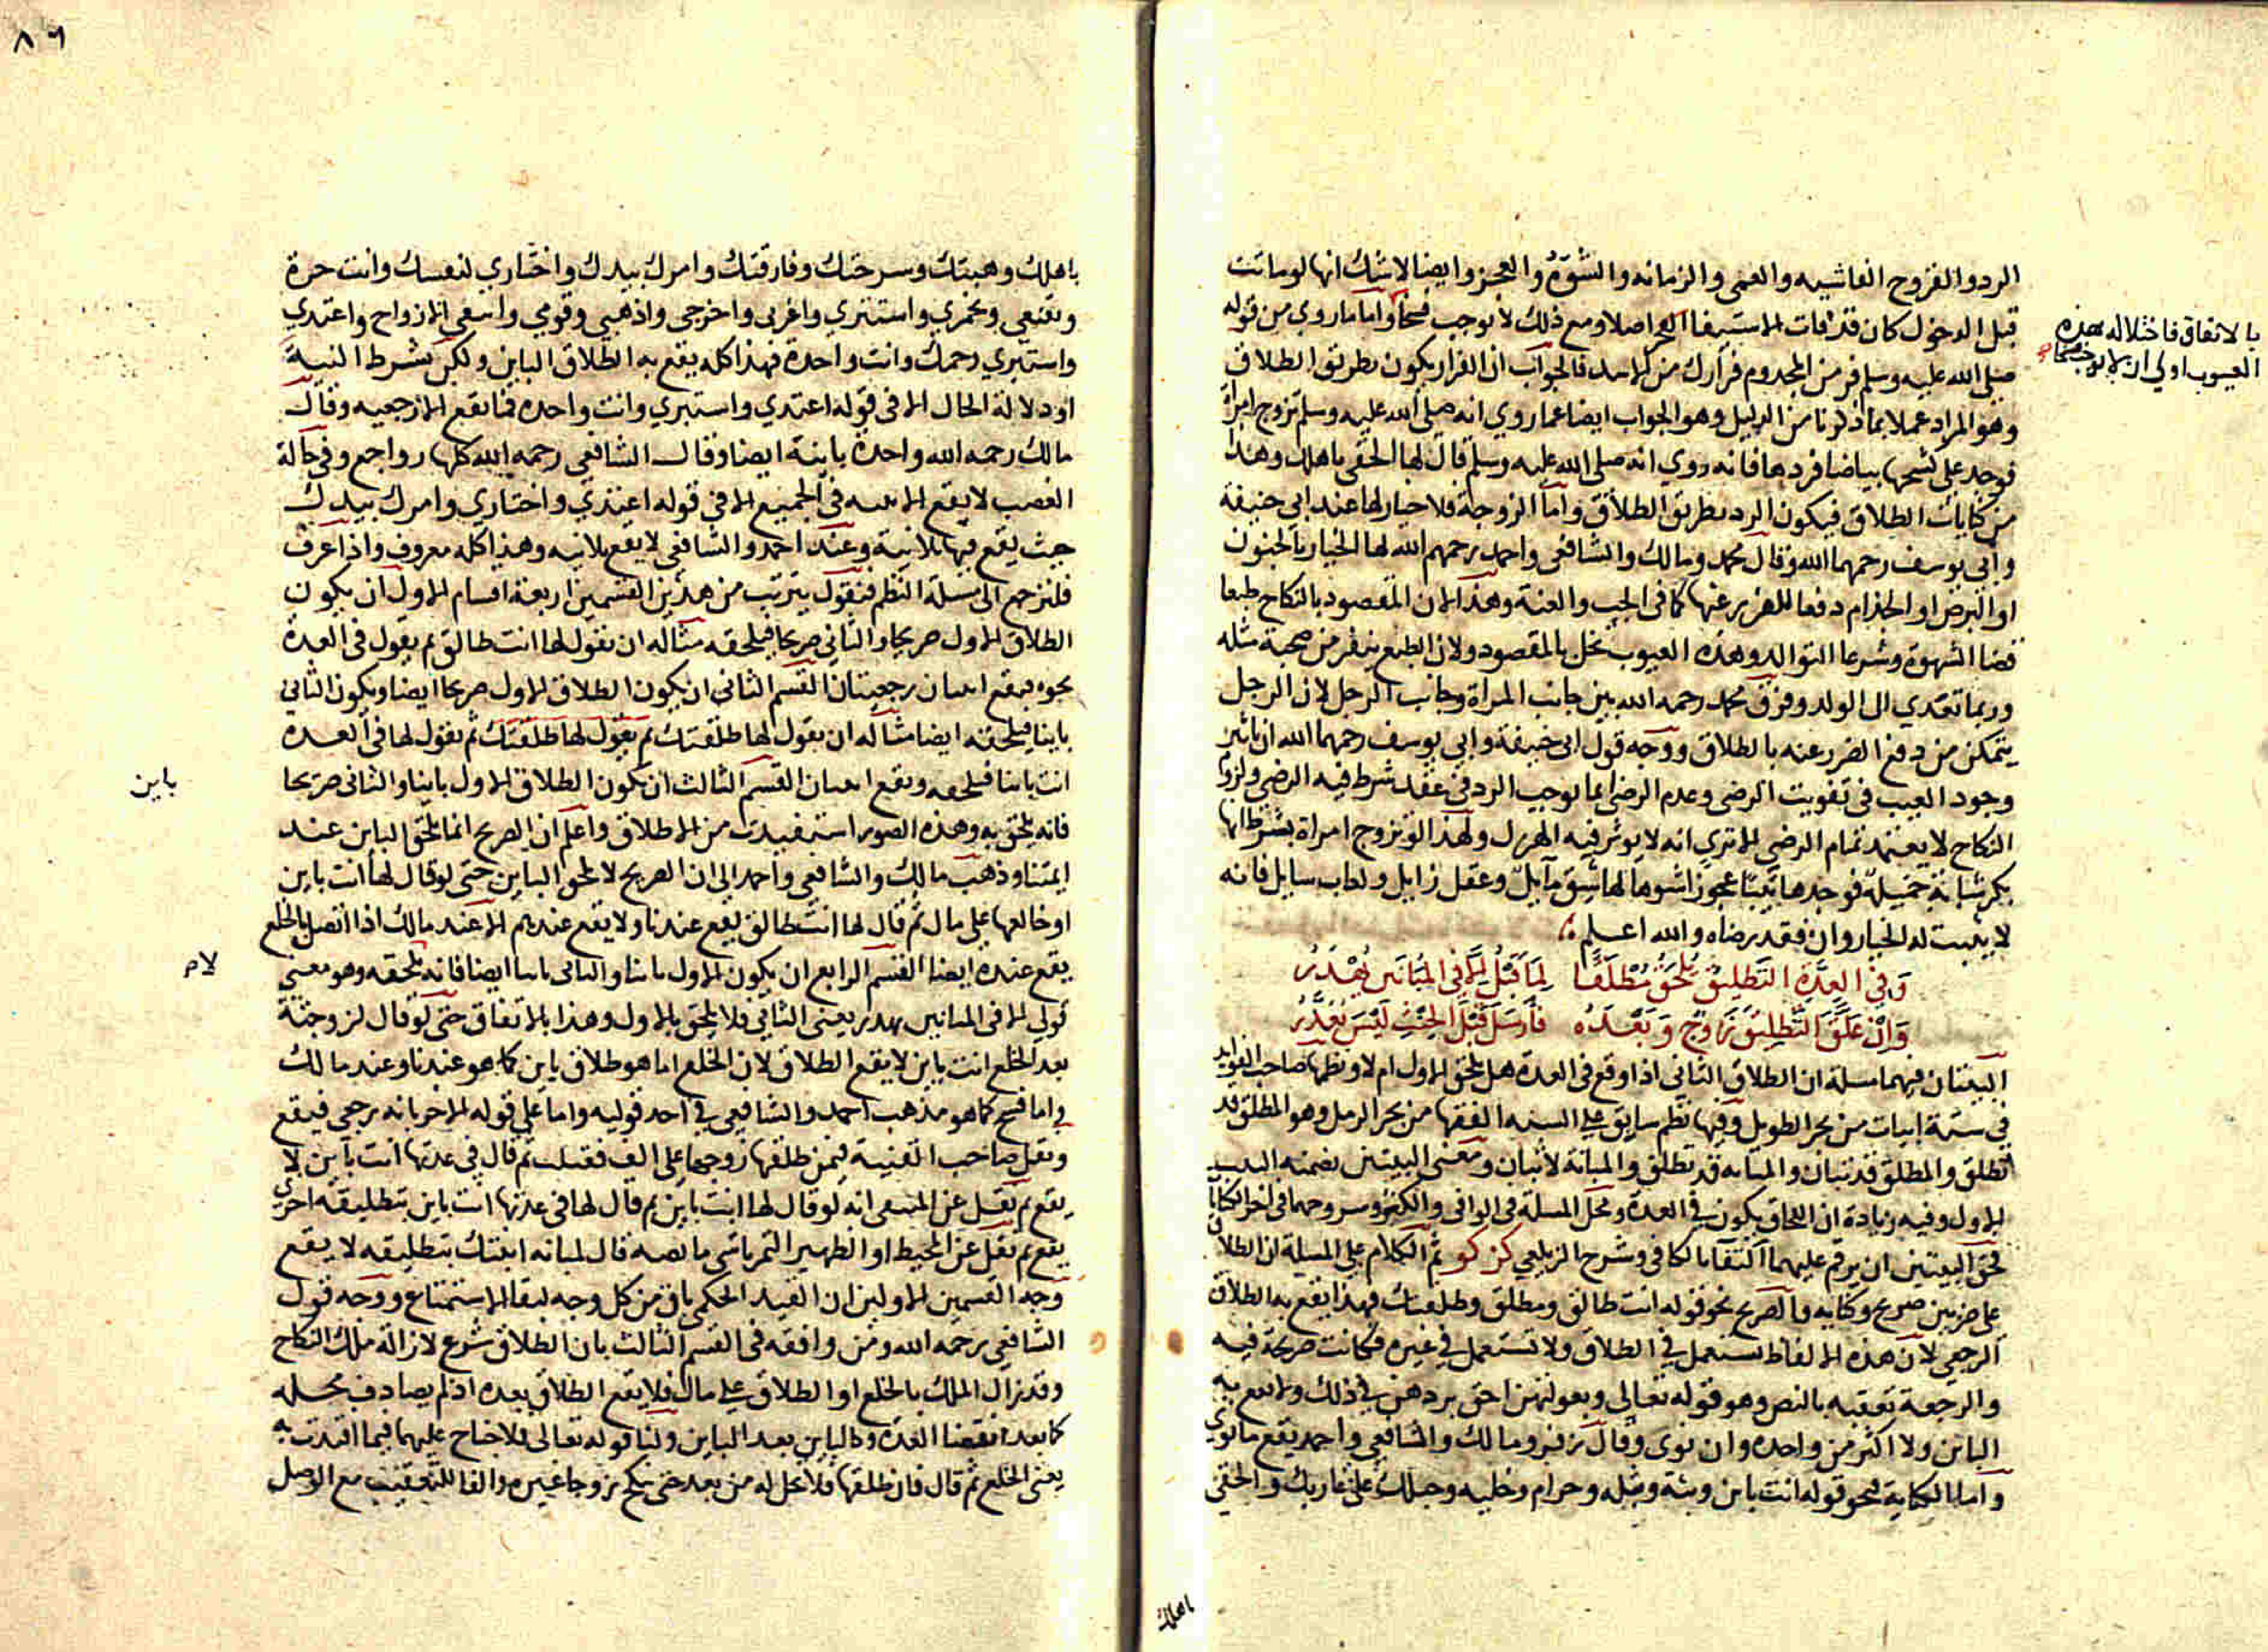 الرد والقروح الفاشيه والعمى والزمانه والشوه والعجز وايضا لا شك انها لو ماتت
قبل الدخول كان قد فات الاستيفا اصلا ومع ذلك لا يوجب فسخا واما ما روي من قوله
صلى الله عليه وسلم فر من المجدوم فرارك من الاسد فالجواب ان الفرار يكون بطريق الطلاق
وهو المراد عملا بما ذكرنا من الدليل وهو الجواب ايضا عما روي انه صلى الله عليه وسلم تزوج امراة
فوجد على كشحها بياضا فردها فانه روي انه صلى الله عليه وسلم قال لها الحقي باهلك وهذا
من كنايات الطلاق فيكون الرد بطريق الطلاق واما الزوجة فلا خيار لها عند ابي حنيفة
وابي يوسف رحمهما الله وقال محمد ومالك والشافعي واحمد رحمهم الله لها الخيار بالجنون
او البرص او الجذام دفعا للضرر عنها كما في الجب والعنة وهذا لان المقصود بالنكاح طبعا
قضا الشهوة وشرعا التوالد وهذه العيوب تخل بالمقصود ولان الطبع ينفر من صحبة مثله
وربما تعدي الى الولد وفرق محمد رحمه الله بين جانب المراة وجانب الرجل لان الرجل
يتمكن من دفع الضرر عنه بالطلاق ووجه قول ابي حنيفة وابي يوسف رحمهما الله ان تاثير
وجود العيب في تفويت الرضى وعدم الرضى انما يوجب الرد في عقد شرط فيه الرضى ولزوم
النكاح لا يعتمد تمام الرضى الا تري انه لا يوثر فيه الهزل ولهذا لو تزوج امراة بشرط انها
بكر شابة جميلة فوجدها ثيبا عجوزا شوها لها شق مايل وعقل زايل ولعاب سايل فانه
لا يثبت له الخيار وان فقد رضاه والله اعلم
وَفي العِدَّةِ التَطليقُ يُلحَقُ مُطْلَقًا لِمَا قَبْلُ إلا في المُبَانَينِ يُهْدَرُ
وَإنْ عَلَّقَ التَّطلِيقَ زَوْجٌ وَبَعْدَهُ فأرسَلَ قَبْلَ الحِنْثِ لَيْسَ يُعَذَّرُ
البيتان فيهما مسلة ان الطلاق الثاني اذا وقع في العدة هل يلحق الاول ام لا ونظمها صاحب الفوايد
في ستة ابيات من بحر الطويل وفيها نظم سابق على السنه الفقها من بحر الرمل وهو المطلق قد
تطلق والمطلق قد تبان والمبانه قد تطلق والمبانة لا تبان ومعنى البيتين تضمنه البيت
الاول وفيه زيادة ان اللحاق يكون في العدة ومحل المسلة في الوافي والكنز وشروحهما في اخر الكنايا
فحق البيتين ان يرقم عليهما اكتفا بالكافي وشرح الزيلعي كز كو ثم الكلام على المسيلة ان الطلاق
على ضربين صريح وكنايه والصريح نحو قوله انت طالق ومطلق وطلقتك فهذا يقع به الطلاق
الرجعي لان هذه الالفاظ تستعمل في الطلاق ولا تستعمل في غيره فكانت صريحة فيه
والرجعة تعقبه بالنص وهو قوله تعالى وبعولتهن احق بردهن في ذلك ولا يقع به
الباين ولا اكثر من واحده وان نوى وقال زفر ومالك والشافعي واحمد يقع ما نوي
واما الكناية فنحو قوله انت باين وبتة وبتله وحرام وخليه وحبلك على غاربك والحقي
بالاتفاق فاختلاله بهذه
العيوب اولى ان لا يوجب فسخا صح
باهلك
٨٦
باهلك وهبتك وسرحتك وفارقتك وامرك بيدك واختاري لنفسك وانت حرة
وتقنعي وتخمري واستتري واغربى واخرجى واذهبي وقومي وابتغي الازواج واعتدي
واستبري رحمك وانت واحدة فهذا كله يقع به الطلاق الباين ولكن بشرط النية
او دلالة الحال الا في قوله اعتدي واستبري وانت واحده فما يقع الا رجعيه وقال
مالك رحمه الله واحدة باينة ايضا وقال الشافعي رحمه الله كلها رواجع وفي حالة
الغضب لا يقع الا بنيه في الجميع الا في قوله اعتدي واختاري وامرك بيدك
حيث يقع فيها بلا نية وعند احمد والشافعي لا يقع بلا نيه وهذا كله معروف واذا عرف
فلنرجع الى مسلة النظم فنقول يترتب من هذين القسمين اربعة اقسام الاول ان يكون
الطلاق الاول صريحا والثاني صريحا فيلحقه مثاله ان يقول لها انت طالق ثم يقول في العدة
نحوه فيقع اثنتان رجعيتان القسم الثاني ان يكون الطلاق الاول صريحا ايضا ويكون الثاني
باينا فيلحقه ايضا مثاله ان يقول لها طلقتك ثم يقول لها طلقتك ثم يقول لها في العده
انت باينا فيلحقه ويقع اثنتان القسم الثالث ان يكون الطلاق الاول باينا والثاني صريحا
فانه يلحق به وهذه الصور استفيدت من الاطلاق واعلم ان الصريح انما يلحق الباين عند
ايمتنا وذهب مالك والشافعي واحمد الى ان الصريح لا يلحق الباين حتى لو قال لها انت باين
او خالعها على مال ثم قال لها انت طالق يقع عندنا ولا يقع عندهم الا عند مالك اذا اتصل بالخلع
يقع عنده ايضا القسم الرابع ان يكون الاول باينا والثاني باينا ايضا فانه يلحقه وهو معنى
قولي الا في المبانين يهدر يعنى الثاني فلا يلحق بالاول وهذا بالاتفاق حتى لو قال لزوجته
بعد الخلع انت باين لا يقع الطلاق لان الخلع اما هو طلاق باين كما هو عندنا وعند مالك
واما فسخ كما هو مذهب احمد والشافعي في احد قوليه واما على قوله الاخر بانه رجعي فيقع
ونقل صاحب القنية فيمن طلقها زوجها على الف فقبلت ثم قال في عدتها انت باين لا
يقع ثم نقل عن المنتقى انه لو قال لها انت باين ثم قال لها في عدتها انت باين بتطليقه اخرى
يقع ثم نقل عن المحيط او الظهير التمرتاشي ما نصه قال لمبانه ابنتك بتطليقه لا يقع
وجه القسمين الاولين ان القيد الحكمي باق من كل وجه لبقا الاستمتاع ووجه قول
الشافعي رحمه الله ومن وافقه في القسم الثالث بان الطلاق شرع لازالة ملك النكاح
وقد زال الملك بالخلع او الطلاق على مال فلا يقع الطلاق بعده اذ لم يصادف محله
كما بعد انقضا العدة وكالباين بعد الباين ولنا قوله تعالى فلا جناح عليهما فيما افتدت به
يعنى الخلع ثم قال فان طلقها فلا تحل له من بعد حتى تنكح زوجا غيره والفا للتعقيب مع الوصل
باين
لام